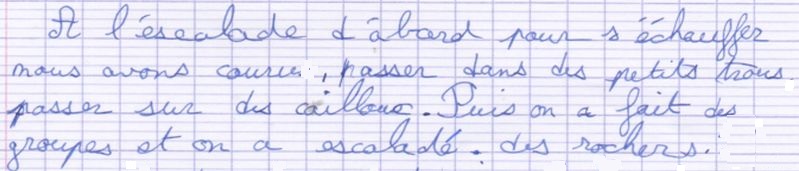 A l'éscalade d'âbord pour s'échauffer
nous avons courue, passer dans des petits trous.
passer sur des cailloux. Puis on a fait des
groupes et on a escaladé. des rochers.